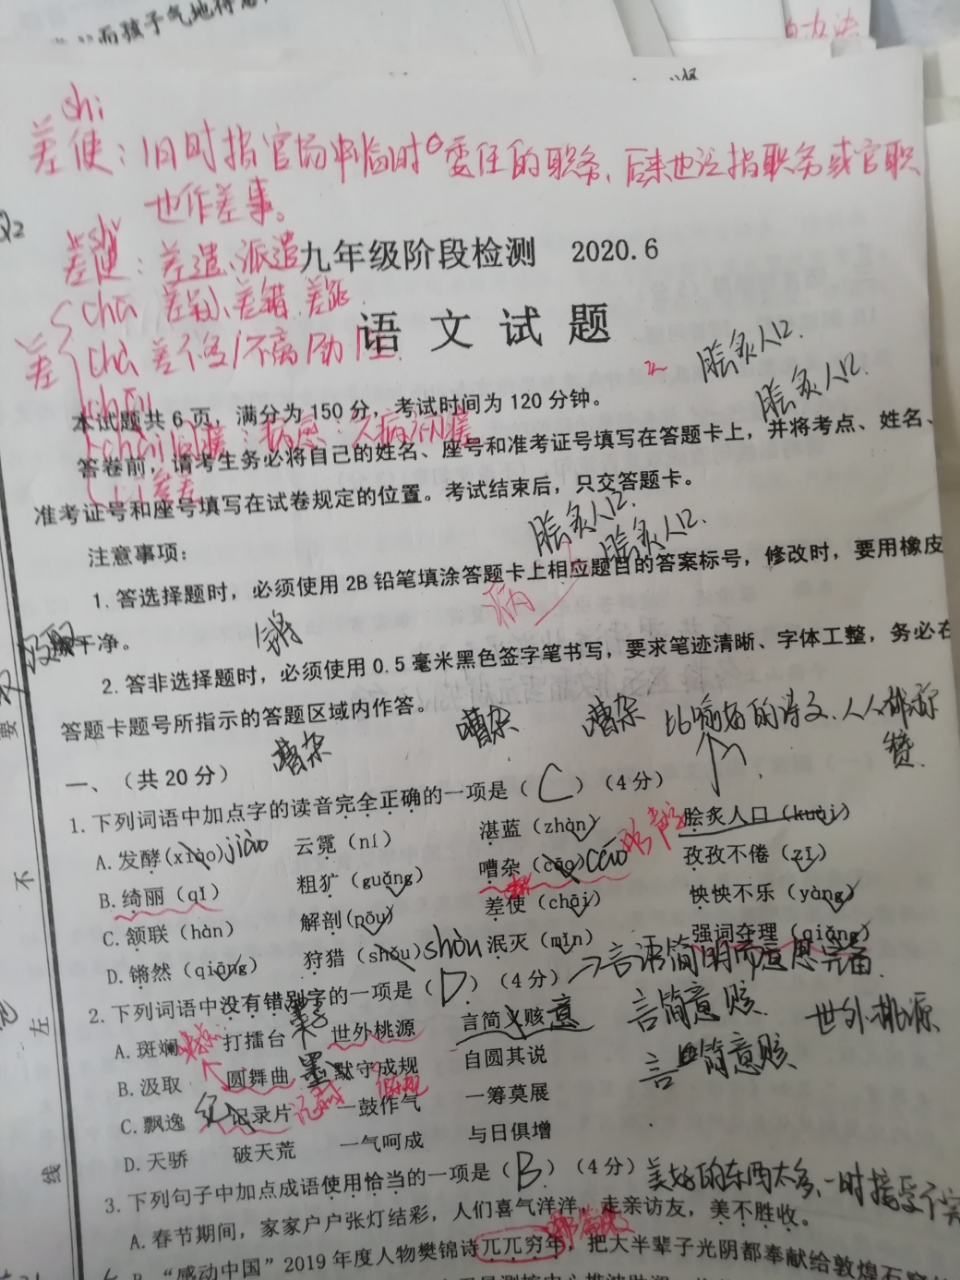 而孩子气地得意
shi
差使：旧时指官场中临时委任的职务，后来也泛指职务或官职
也作差事。
差使：差遣、派遣
九年级阶段检测 2020.6
chā 差别、差错、差距
语文试题
差
脍炙人口
脍炙人口
本试题共6页，满分为150分，考试时间为120分钟。
答卷前，请考生务必将自己的姓名、座号和准考证号填写在答题卡上，并将考点、姓名、
准考证号和座号填写在试卷规定的位置。考试结束后，只交答题卡。
脍炙人口
脍炙人口
注意事项：
1.答选择题时，必须使用2B铅笔填涂答题卡上相应题目的答案标号，修改时，要用橡皮
病
干净。
锵
2.答非选择题时，必须使用0.5毫米黑色签字笔书写，要求笔迹清晰、字体工整，务必在
答题卡题号所指示的答题区域内作答。
嘈杂 嘈杂 嘈杂
比喻好的诗文，人人都称
赞
一、（共20分）
1.下列词语中加点字的读音完全正确的一项是（C）（4分）
A.发酵(xiào) jiào 云霓（ní） 湛蓝（zhàn） 脍炙人口（kuài）
B.绮丽（qǐ） 粗犷（guǎng） 嘈杂（cāo）cáo 孜孜不倦（zī）
C.颔联（hàn） 解剖(pōu) 差使（chāi） 怏怏不乐（yàng）
D.锵然（qiāng） 狩猎（shǒu）shòu 泯灭（mǐn） 强词夺理（qiǎng）
2.下列词语中没有错别字的一项是（D）（4分） 言语简明而意思完备
A.斑斓 打擂台 世外桃源 言简义赅 意
言简意赅 世外桃源
B.汲取 圆舞曲 默守成规 墨 自圆其说
言简意赅
C.飘逸 记录片 纪 一鼓作气 一筹莫展
D.天骄 破天荒 一气呵成 与日俱增
3.下列句子中加点成语使用恰当的一项是（B）（4分）
美好的东西太多，一时接受不完
A.春节期间，家家户户张灯结彩，人们喜气洋洋，走亲访友，美不胜收。
B.“感动中国”2019年度人物樊锦诗兀兀穷年，把大半辈子光阴都奉献给敦煌石窟
要
不
左
线